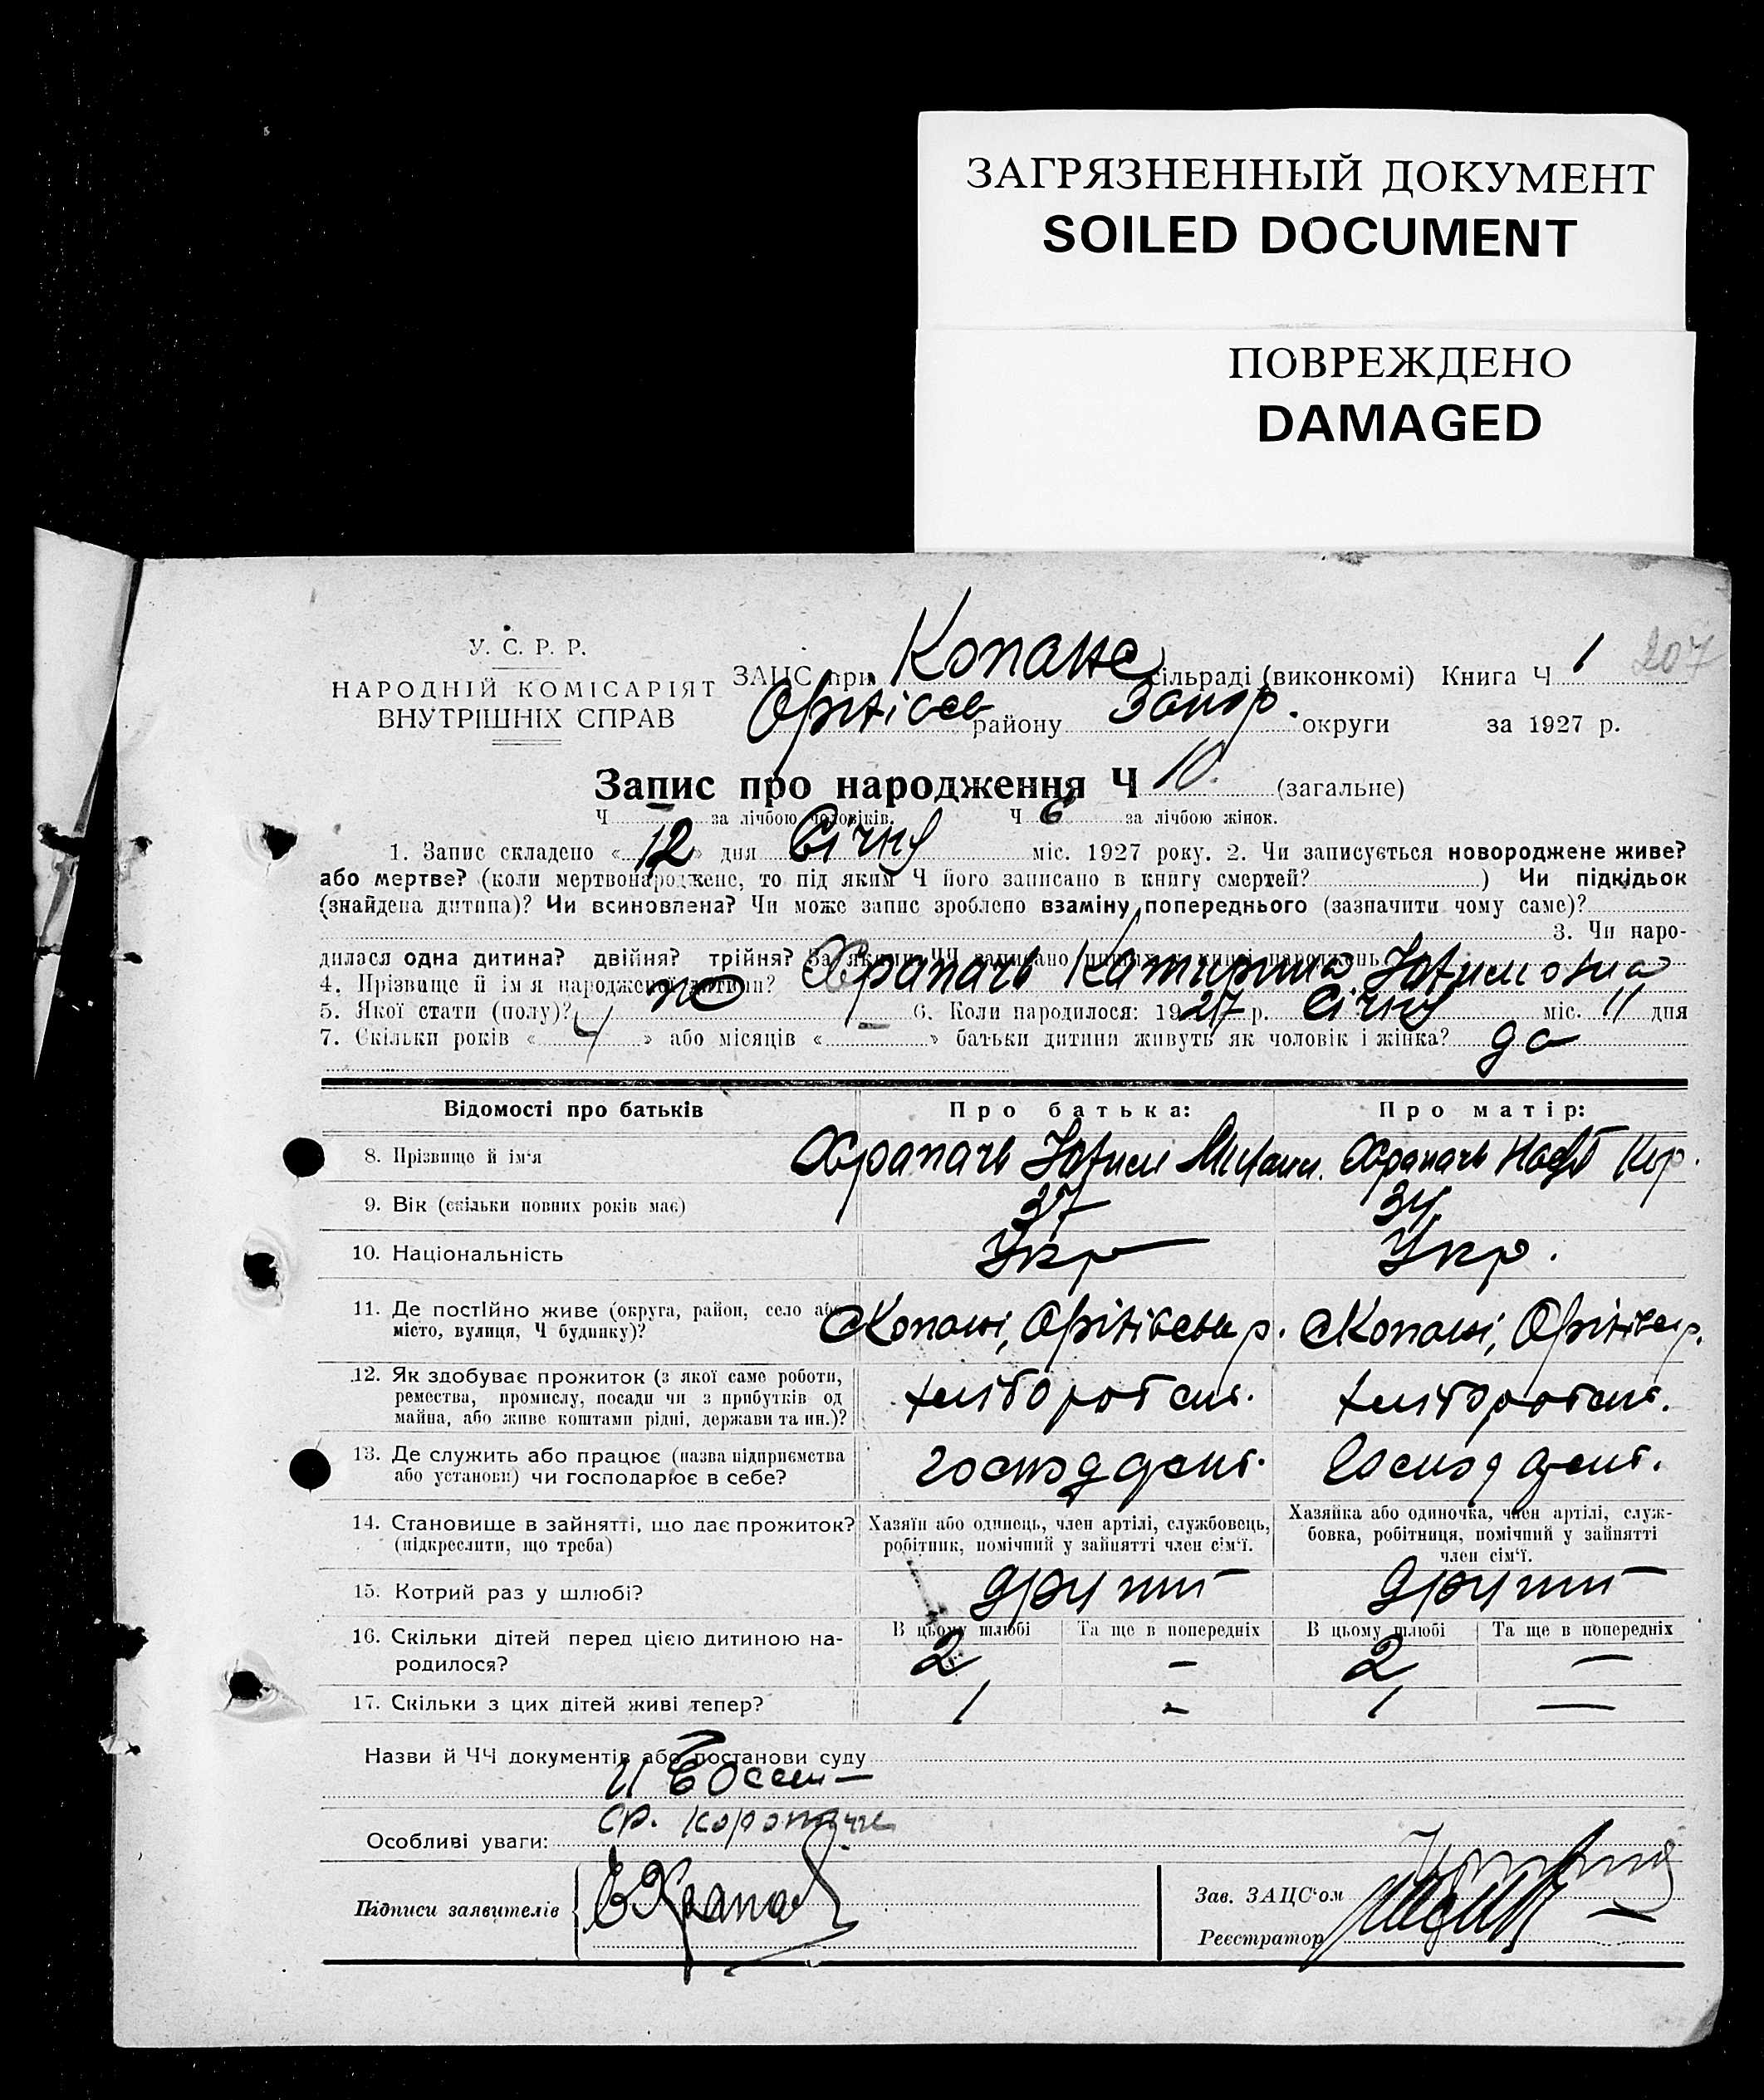 ЗАГРЯЗНЕННЫЙ ДОКУМЕНТ
SOILED DOCUMENT
ПОВРЕЖДЕНО
DAMAGED
207
У. С. Р. Р.
НАРОДНІЙ КОМІСАРІЯТ
ВНУТРІШНІХ СПРАВ
ЗАЦС при Копане сільраді (виконкомі) Книга Ч 1
Оріхівсь району Запор. округи за 1927 р.
Запис про народження Ч 10. (загальне)
Ч — за лічбою чоловіків. Ч 6 за лічбою жінок.
1. Запис складено « 12 » дня Січну міс. 1927 року. 2. Чи записується новороджене живе?
або мертве? (коли мертвонароджене, то під яким Ч його записано в книгу смертей? ) Чи підкідьок
(знайдена дитина)? Чи всиновлена? Чи може запис зроблено взаміну попереднього (зазначити чому саме)?
3. Чи наро-
дилася одна дитина? двійня? трійня? За якими ЧЧ записано инших в книзі народжень
4. Прізвище й ім'я народженої дитини? Храпачь Катирина Юхимовна
5. Якої стати (полу)? жо 6. Коли народилося: 1927 р. Січну міс. 11 дня
7. Скільки років « 4 » або місяців « — » батьки дитини живуть як чоловік і жінка? да
Відомості про батьків Про батька: Про матір:
8. Прізвище й ім'я Храпачь Юхим Михаил. Храпачь Кор.
9. Вік (скільки повних років має) 37 34
10. Національність Укр Укр.
11. Де постійно живе (округа, район, село або Копані, Оріхівськ р. Копані, Оріхівськ р.
місто, вулиця, Ч будинку)?
12. Як здобуває прожиток (з якої саме роботи, хліборобст. хліборобст.
ремества, промислу, посади чи з прибутків од
майна, або живе коштами рідні, держави та ин.)?
13. Де служить або працює (назва підприємства
або установи) чи господарює в себе?
14. Становище в зайнятті, що дає прожиток? Хазяїн або одинець, член артілі, службовець, Хазяйка або одиночка, член артілі, служ-
(підкреслити, що треба) робітник, помічний у зайнятті член сім'ї. бовка, робітниця, помічний у зайнятті
член сім'ї.
15. Котрий раз у шлюбі?
16. Скільки дітей перед цією дитиною на- В цьому шлюбі Та ще в попередніх В цьому шлюбі Та ще в попередніх
родилося? 2 — 2 —
17. Скільки з цих дітей живі тепер? 1 - 1 —
Назви й ЧЧ документів або постанови суду
Особливі уваги:
Підписи заявителів Храпач
Зав. ЗАЦС'ом
Реєстратор